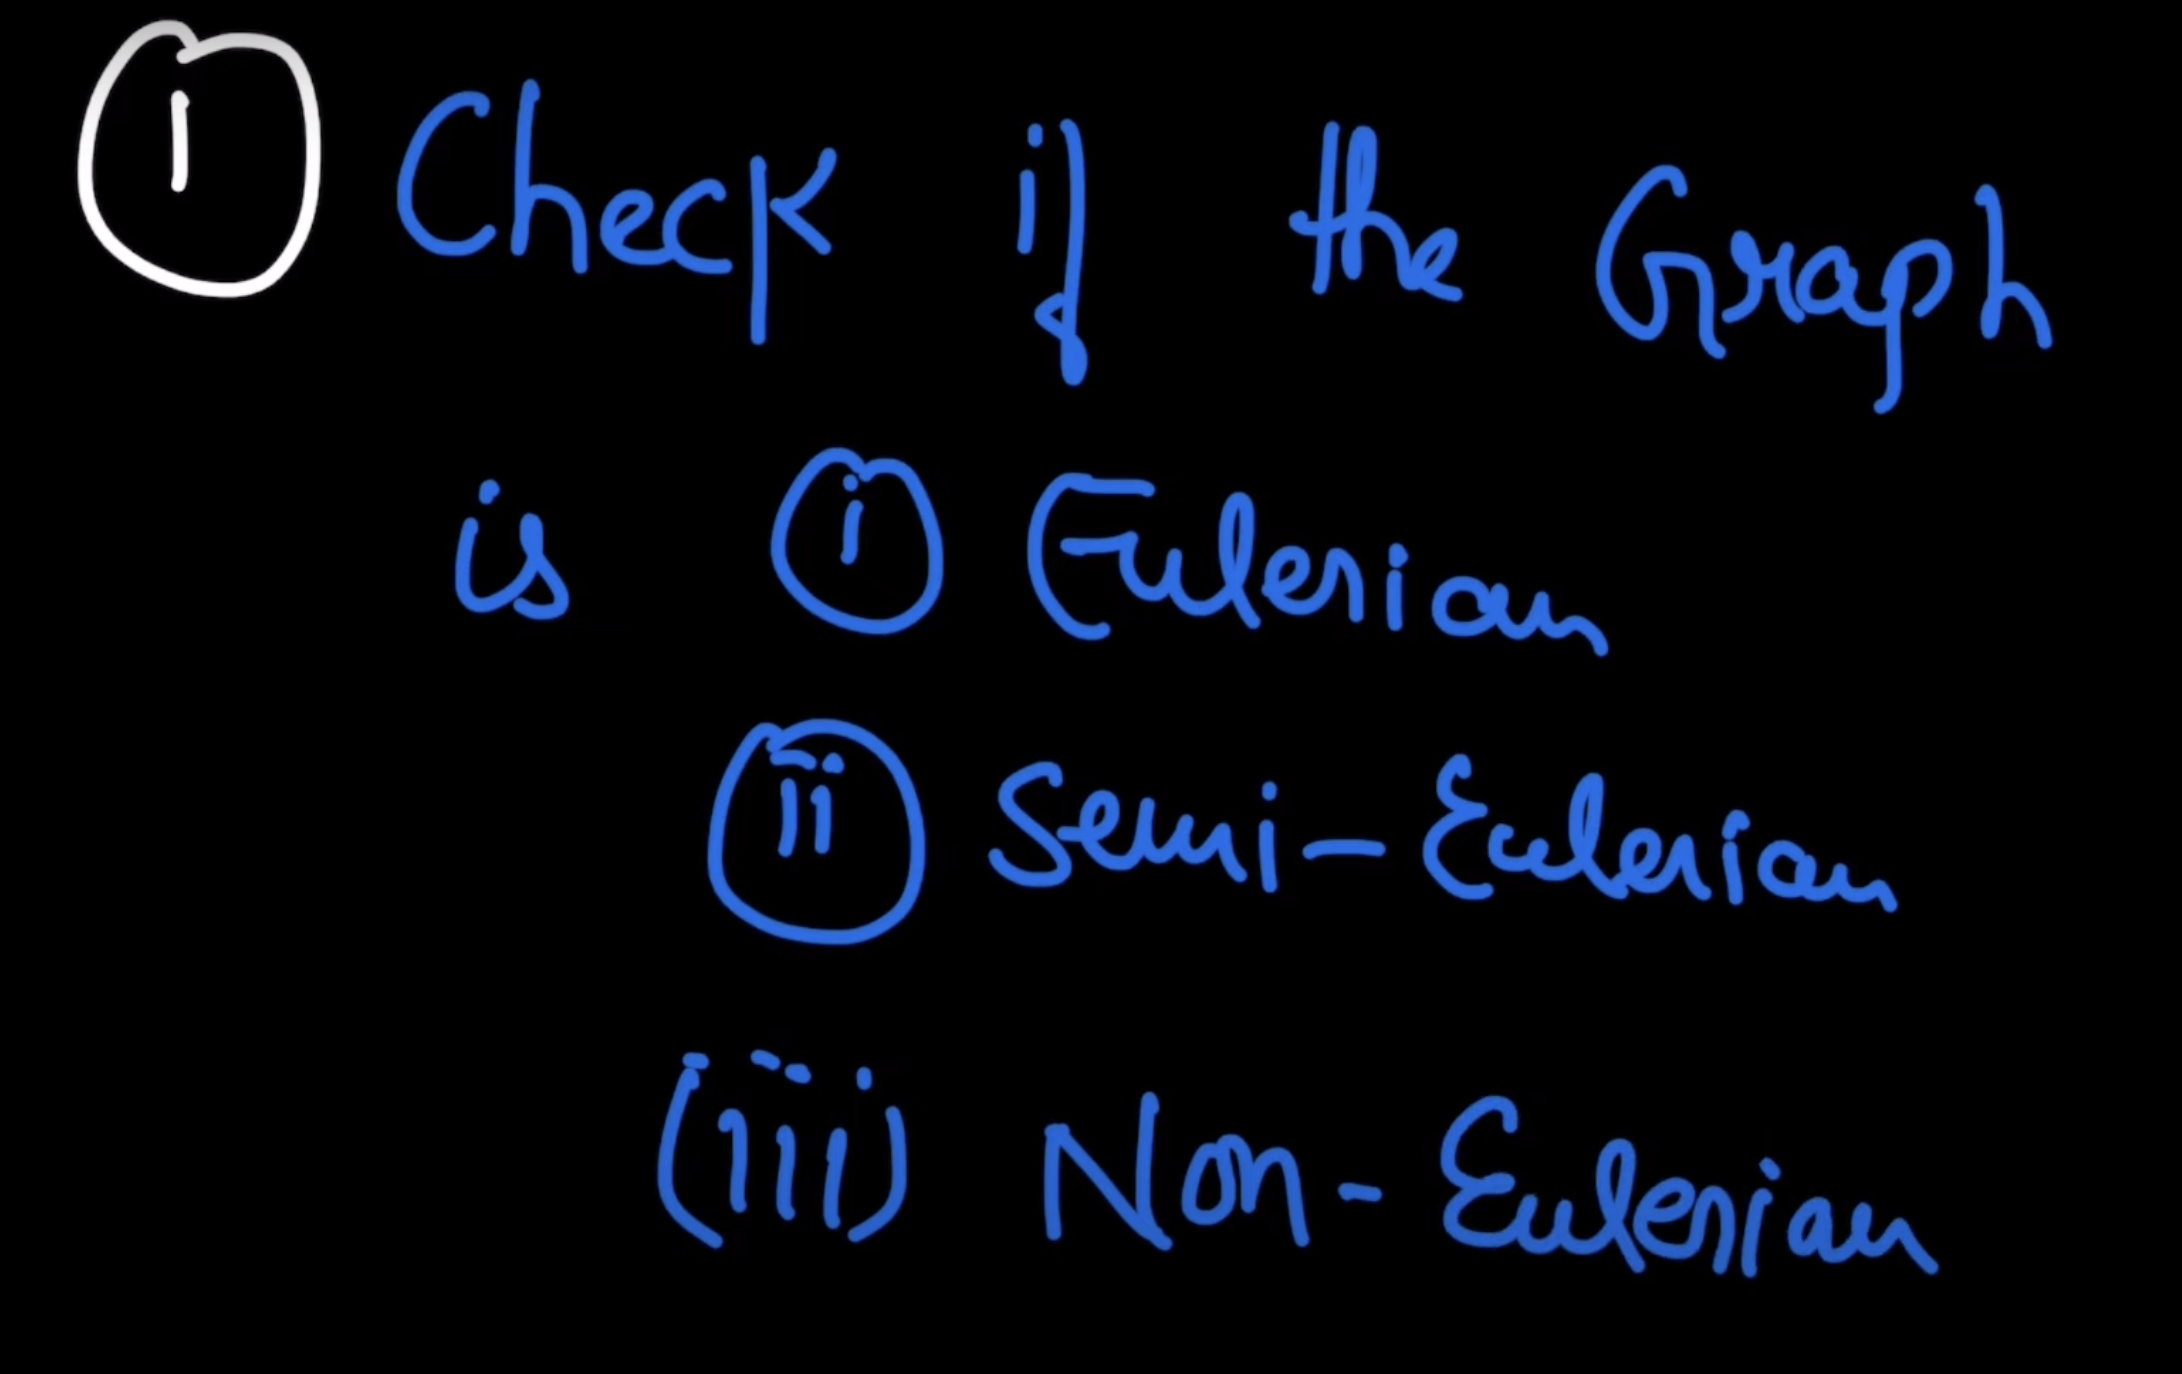 1 Check if the Graph
is i Eulerian
ii Semi-Eulerian
(iii) Non-Eulerian